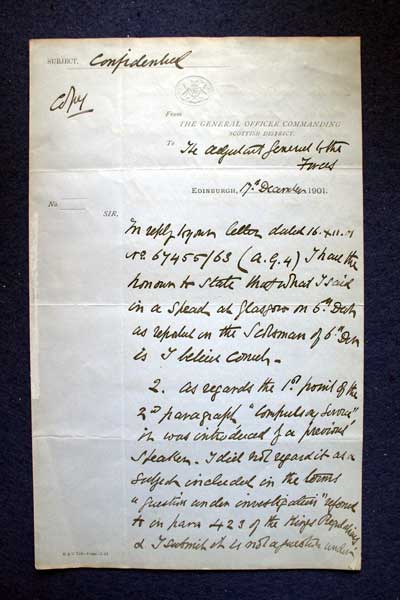 SUBJECT. Confidential
Copy
From
THE GENERAL OFFICER COMMANDING
SCOTTISH DISTRICT.
To The Adjutant General to the
Forces
EDINBURGH, 17th December 1901.
No.
SIR,
In reply to your letter dated 16.XII.01
No. 67455/63 (A.G.4) I have the
honour to state that what I said
in a speech at Glasgow on 5th Dec
as reported in the Scotsman of 6th Dec
is I believe correct.
2. As regards the 1st point of the
2nd paragraph "Compulsory Service"
it was introduced by a previous
speaker. I did not regard it as a
subject included in the terms
"question under investigation" referred
to in para 423 of the Kings Regulations
& I submit it is not a question under